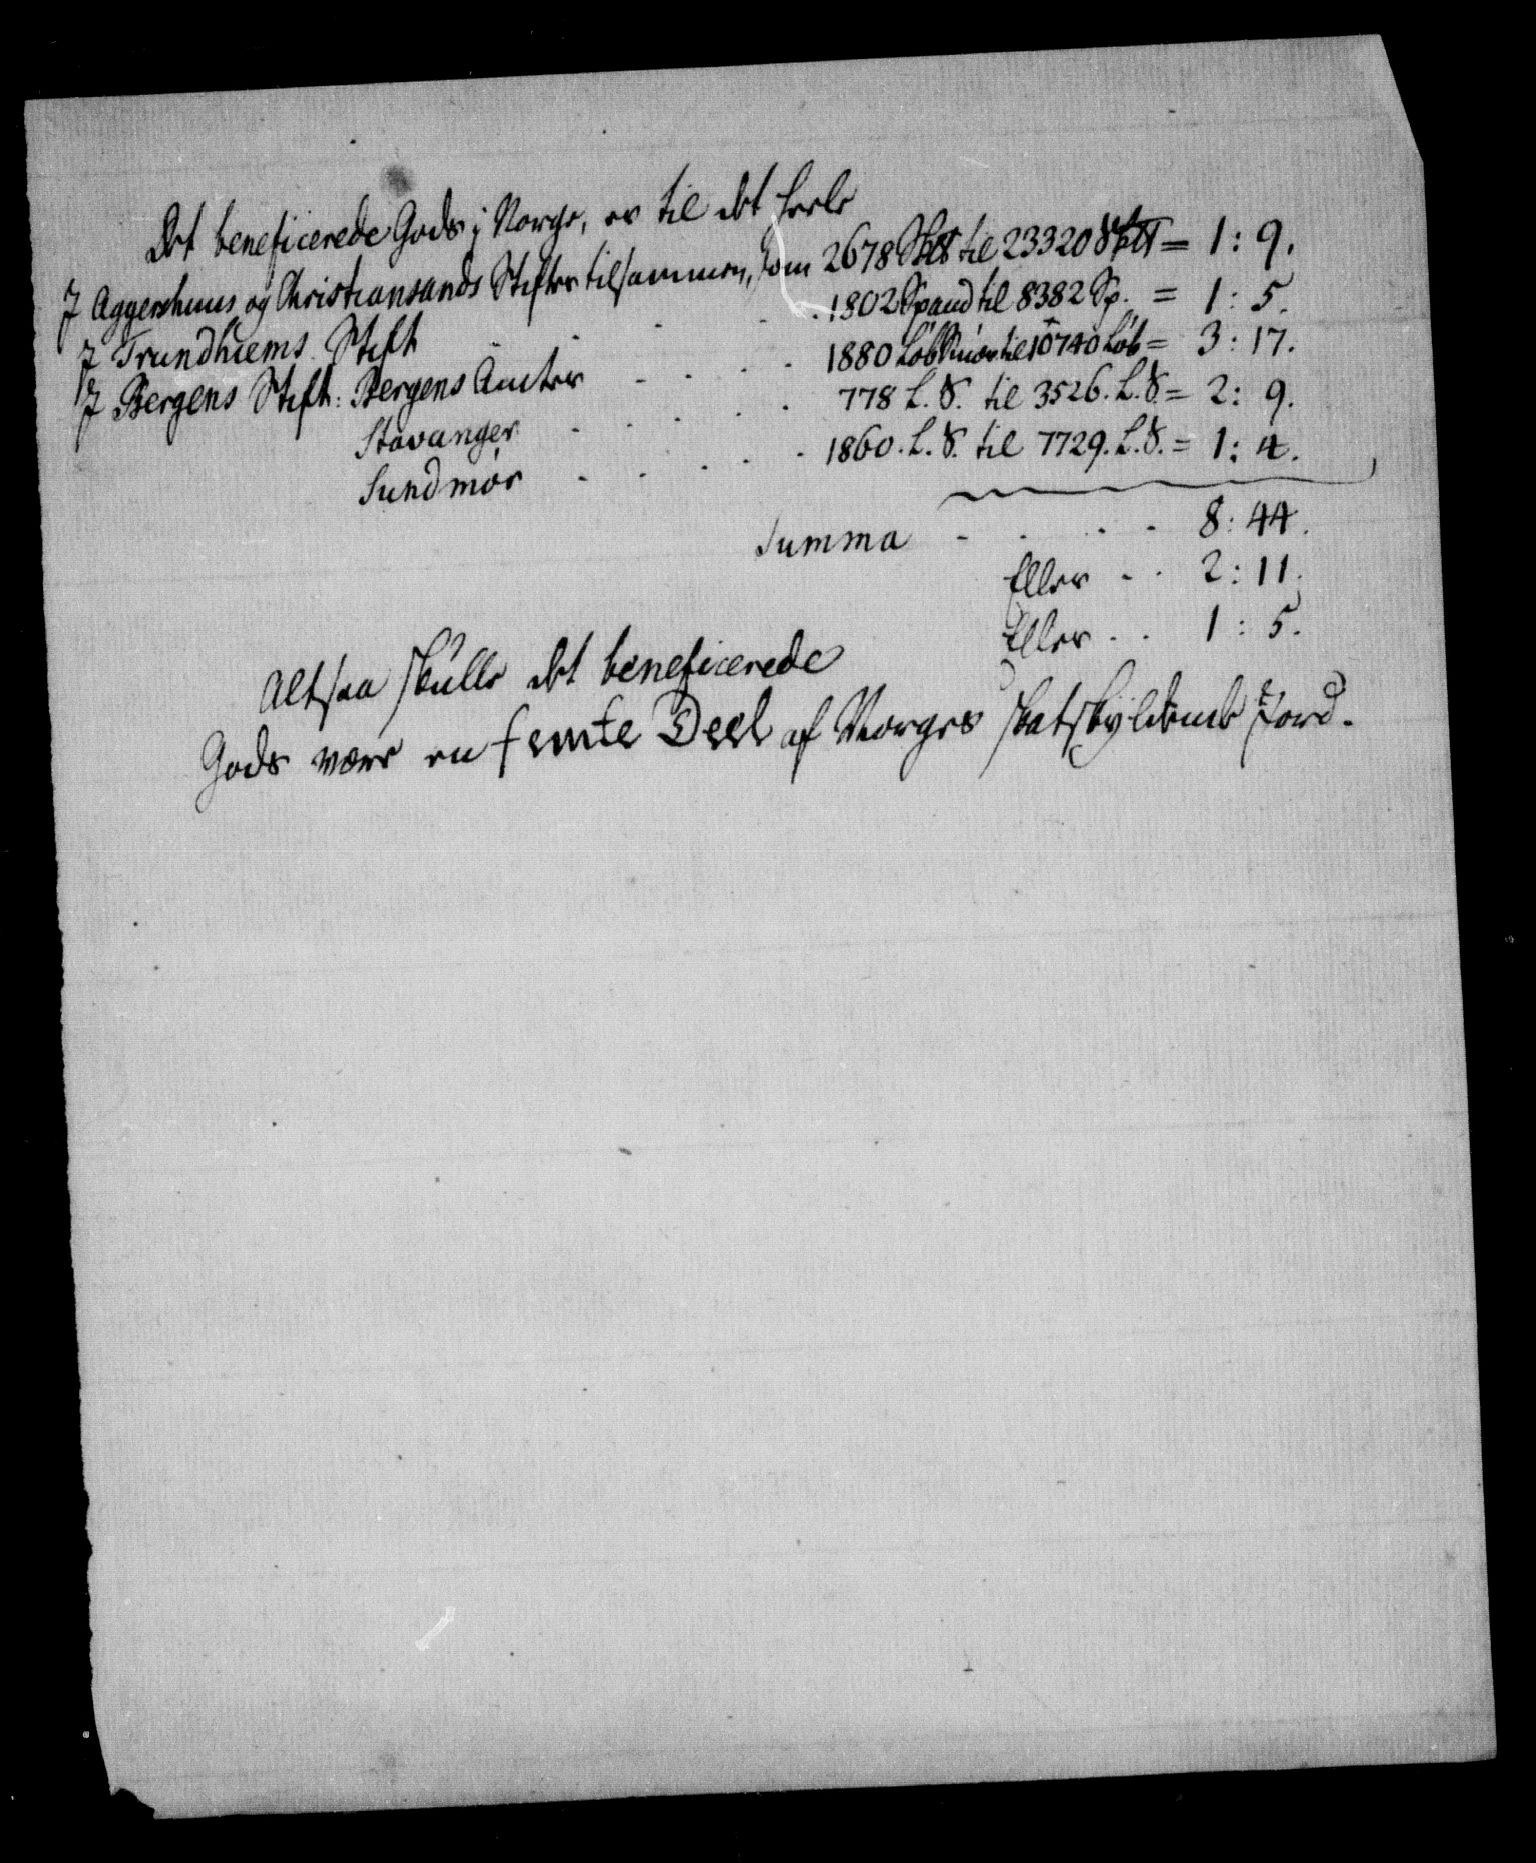 Det beneficerede Gods i Norge, er til det heele
J Aggershuus og Christiansands Stifter tilsammen, som 2678 til 23320 = 1 : 9.
J Trundhiems Stift . . . . 1802 Spand til 8382 Sp. = 1 : 5.
J Bergens Stift: Bergens Amter . . . . 1880 Løb Smør til 10740 Løb = 3 : 17.
Stavanger . . . . 778 L.℔. til 3526. L.℔. = 2 : 9.
Sundmør . . . . . 1860. L.℔. til 7729. L.℔. = 1 : 4.
Summa . . . . 8 : 44.
Eller . . 2 : 11.
Eller . . 1 : 5.
Altsaa skulle det beneficerede
Gods være en femte Deel af Norges skatskyldende Jord.